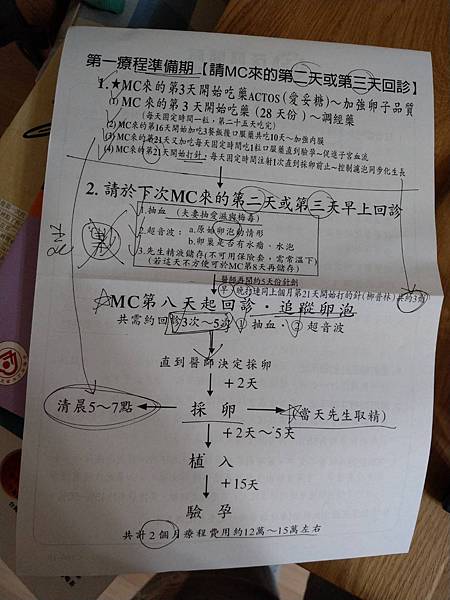 第一療程準備期【請MC來的第二天或第三天回診】
1.★MC來的第3天開始吃藥ACTOS(愛妥糖)～加強卵子品質
(1) MC來的第3天開始吃藥(28天份)～調經藥
(每天固定時間一粒,第二十五天吃完)
(2) MC來的第16天開始加吃3餐飯後口服藥共吃10天～加強內膜
(3) MC來的第24天又加吃每天固定時間吃1粒口服藥直到驗孕～促進子宮血流
(4) MC來的第21天開始打針,每天固定時間注射1次直到採卵前止～控制濾泡同步化生長
2. 請於下次MC來的第二天或第三天早上回診
1.抽血 (夫妻抽愛滋與梅毒)
2.超音波: a.原始卵泡動情形
b.卵巢是否有水瘤、水泡
3.先生精液儲存(不可用保險套,需常溫下)
(若這天不方便可於MC第8天再儲存)
醫師再開約5天份針劑
早、晚打連同上個月第21天開始打的針(柳普林)共約3劑
MC第八天起回診,追蹤卵泡
共需約回診3次～5次 ① 抽血、② 超音波
直到醫師決定採卵
+2天
清晨5～7點
採卵
(當天先生取精)
+2天～5天
植入
+15天
驗孕
共計2個月療程費用約12萬～15萬左右